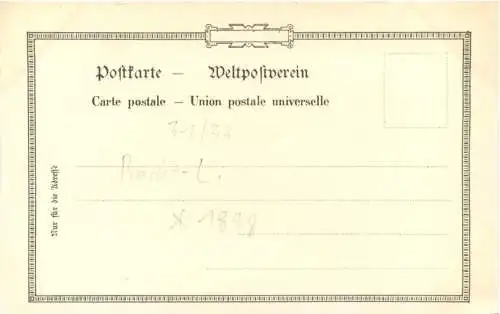 Postkarte — Weltpostverein
Carte postale — Union postale universelle
Nur für die Adresse
* 1898